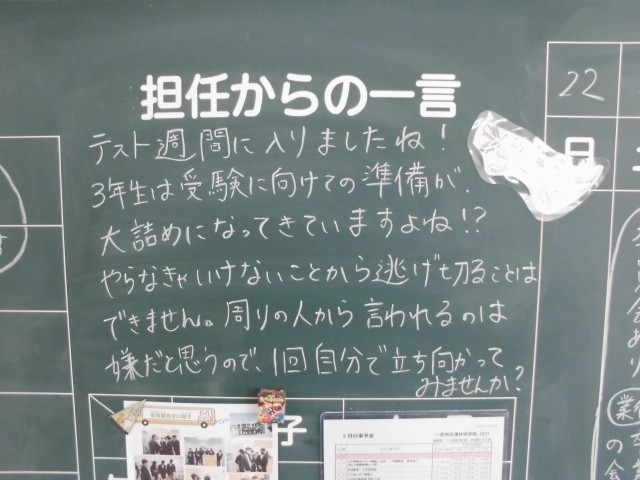 担任からの一言
テスト週間に入りましたね!
3年生は受験に向けての準備が、
大詰めになってきていますよね!?
やらなきゃいけないことから逃げ切ることは
できません。周りの人から言われるのは
嫌だと思うので、1回自分で立ち向かって
みませんか?
22
日
子
3月行事予定
業
の会